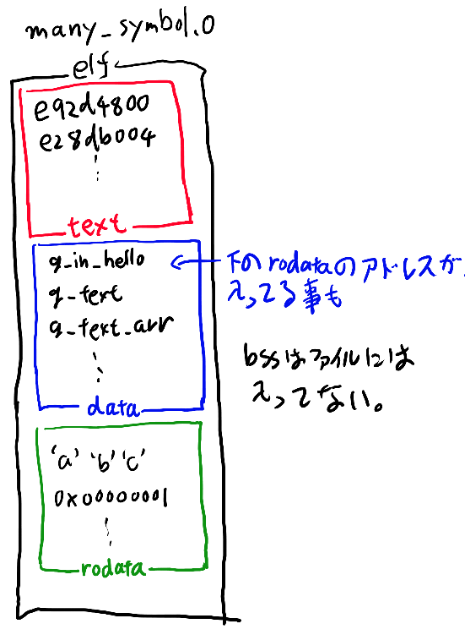 many_symbol.o
elf
e92d4800
e28db004
text
g_in_hello
g_text
g_text_arr
data
下のrodataのアドレスが
入ってる事も
bssはファイルには
入ってない。
'a' 'b' 'c'
0x00000001
rodata